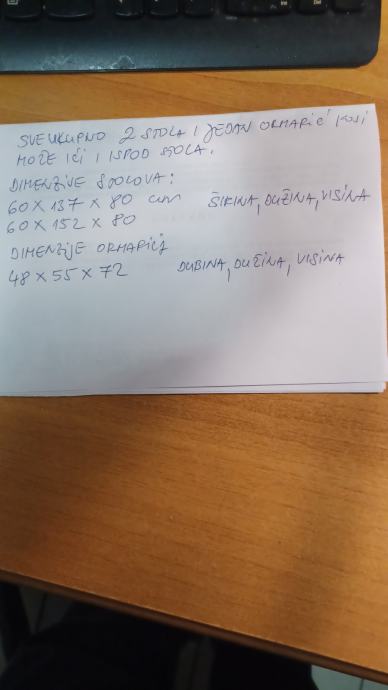 SVEUKUPNO 2 STOLA I JEDAN ORMARIĆ KOJI
MOŽE IĆI I ISPOD STOLA.
DIMENZIJE STOLOVA:
60 X 137 X 80 cm ŠIRINA, DUŽINA, VISINA
60 X 152 X 80
DIMENZIJE ORMARIĆA
48 X 55 X 72 DUBINA, DUŽINA, VISINA